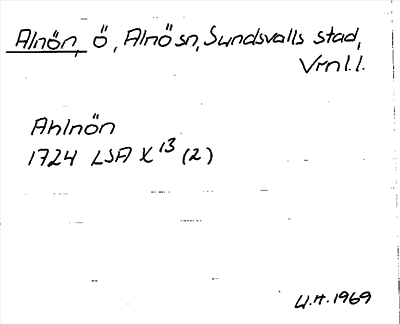 Alnön, ö, Alnö sn, Sundsvalls stad,
Vrml.l.
Ahlnön
1724 LSA X 13 (2)
U.H. 1969